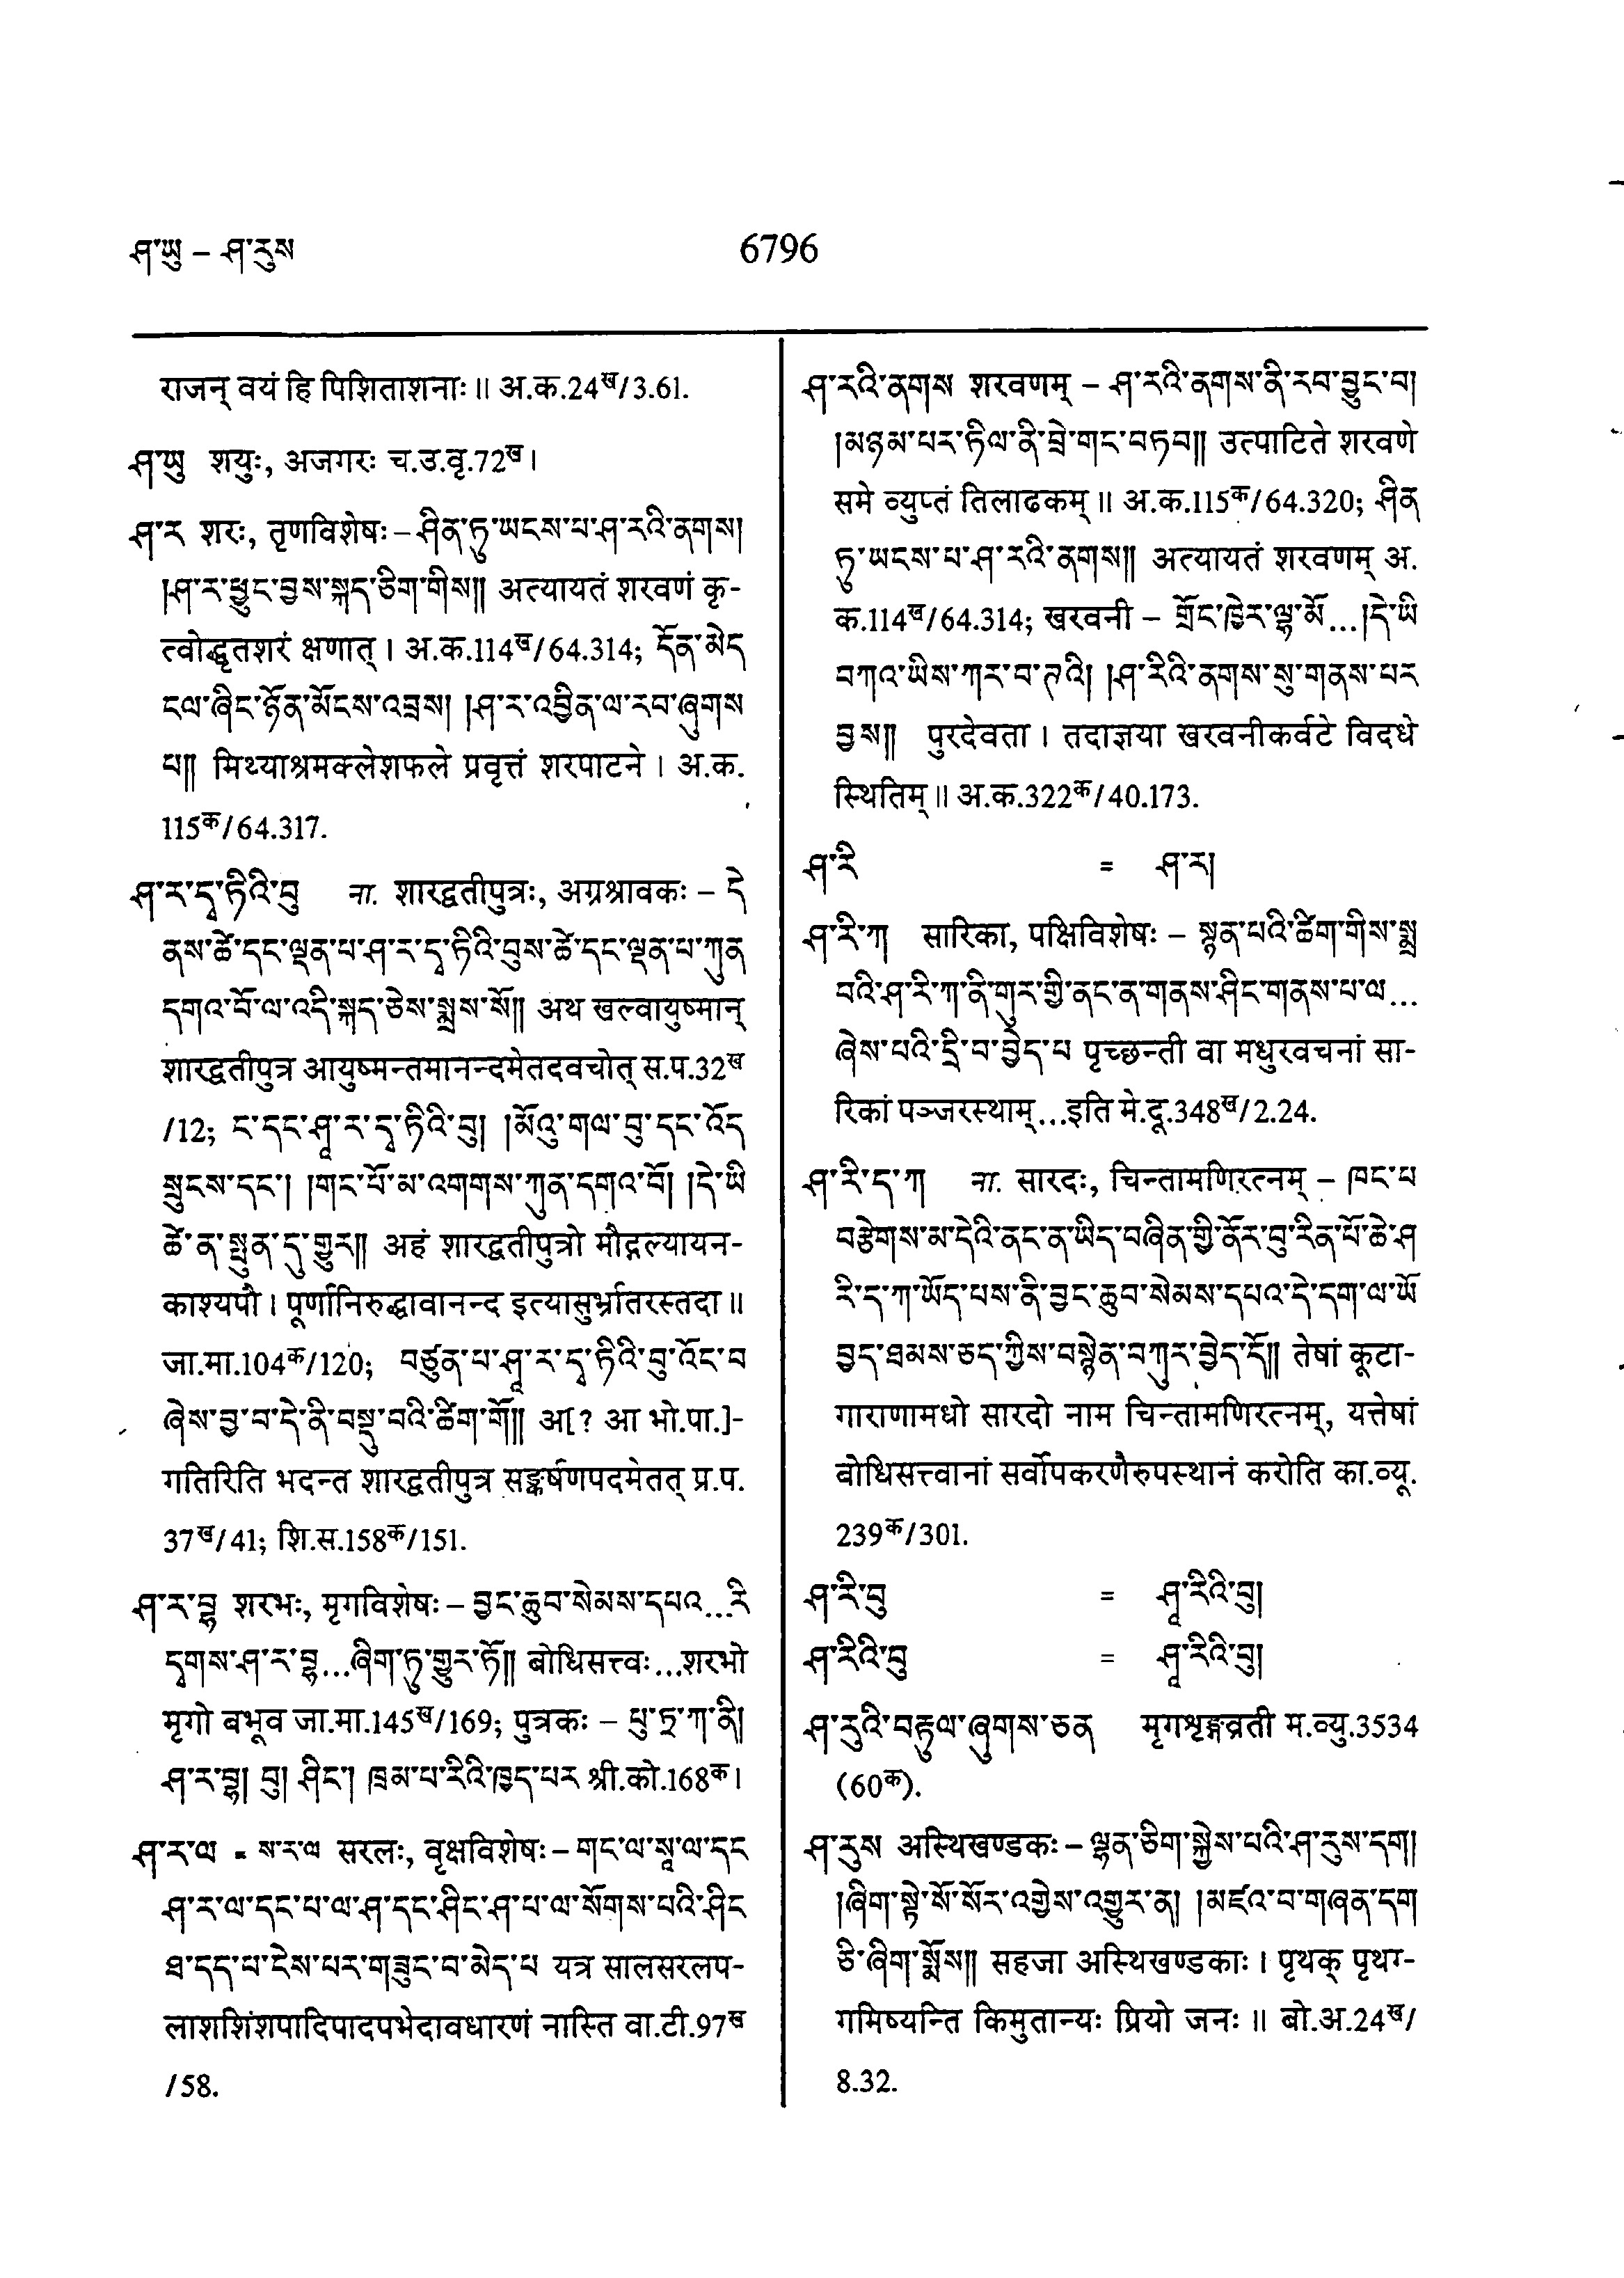 ཤ་ཡུ – ཤ་རུས
6796
राजन् वयं हि पिशिताशनाः॥ अ.क.24ख/3.61.
ཤ་ཡུ शयुः, अजगरः च.उ.वृ.72ख।
ཤ་ར शरः, तृणविशेषः – ཤིན་ཏུ་ཡངས་པ་ཤ་རའི་ནགས།
།ཤ་ར་ཕྱུང་བྱས་སྐད་ཅིག་གིས༎ अत्यायतं शरवणं कृ-
त्वोद्धृतशरं क्षणात्। अ.क.114ख/64.314; དོན་མེད
ངལ་ཞིང་ཉོན་མོངས་འབྲས། །ཤ་ར་འབྱིན་ལ་རབ་ཞུགས
པ༎ मिथ्याश्रमक्लेशफले प्रवृत्तं शरपाटने। अ.क.
115क/64.317.
ཤ་ར་དྭ་ཏིའི་བུ ना. शारद्वतीपुत्रः, अग्रश्रावकः – དེ
ནས་ཚེ་དང་ལྡན་པ་ཤ་ར་དྭ་ཏིའི་བུས་ཚེ་དང་ལྡན་པ་ཀུན
དགའ་བོ་ལ་འདི་སྐད་ཅེས་སྨྲས་སོ༎ अथ खल्वायुष्मान्
शारद्वतीपुत्र आयुष्मन्तमानन्दमेतदवचोत् स.प.32ख
/12; ང་དང་ཤཱ་ར་དྭ་ཏིའི་བུ། །མོའུ་གལ་བུ་དང་འོད
སྲུངས་དང་། །གང་པོ་མ་འགགས་ཀུན་དགའ་བོ། །དེ་ཡི
ཚེ་ན་སྤུན་དུ་གྱུར༎ अहं शारद्वतीपुत्रो मौद्गल्यायन-
काश्यपौ। पूर्णानिरुद्धावानन्द इत्यासुर्भ्रातरस्तदा॥
जा.मा.104क/120; བཙུན་པ་ཤཱ་ར་དྭ་ཏིའི་བུ་འོང་བ
ཞེས་བྱ་བ་དེ་ནི་བསྡུ་བའི་ཚིག་གོ༎ अ[? आ भो.पा.]-
गतिरिति भदन्त शारद्वतीपुत्र सङ्कर्षणपदमेतत् प्र.प.
37ख/41; शि.स.158क/151.
ཤ་ར་བྷ शरभः, मृगविशेषः – བྱང་ཆུབ་སེམས་དཔའ...རི
དྭགས་ཤ་ར་བྷ...ཞིག་ཏུ་གྱུར་ཏོ༎ बोधिसत्त्वः...शरभो
मृगो बभूव जा.मा.145ख/169; पुत्रकः – པུ་ཏྲ་ཀ་ནི།
ཤ་ར་བྷ། བུ། ཤིང་། ཁྲམ་པ་རིའི་ཁྱད་པར श्री.को.168क।
ཤ་ར་ལ = ས་ར་ལ सरलः, वृक्षविशेषः – གང་ལ་སཱ་ལ་དང
ཤ་ར་ལ་དང་པ་ལ་ཤ་དང་ཤིང་ཤ་པ་ལ་སོགས་པའི་ཤིང
ཐ་དད་པ་ངེས་པར་གཟུང་བ་མེད་པ यत्र सालसरलप-
लाशशिंशपादिपादपभेदावधारणं नास्ति वा.टी.97ख
/58.
ཤ་རའི་ནགས शरवणम् – ཤ་རའི་ནགས་ནི་རབ་བྱུང་བ།
།མཉམ་པར་ཏིལ་ནི་བྲེ་གང་བཏབ༎ उत्पाटिते शरवणे
समे व्युप्तं तिलाढकम्॥ अ.क.115क/64.320; ཤིན
ཏུ་ཡངས་པ་ཤ་རའི་ནགས༎ अत्यायतं शरवणम् अ.
क.114ख/64.314; खरवनी – གྲོང་ཁྱེར་ལྷ་མོ...།དེ་ཡི
བཀའ་ཡིས་ཀར་བ་ཊའི། །ཤ་རིའི་ནགས་སུ་གནས་པར
བྱས༎ पुरदेवता। तदाज्ञया खरवनीकर्वटे विदधे
स्थितिम्॥ अ.क.322क/40.173.
ཤ་རི = ཤ་ར།
ཤ་རི་ཀ सारिका, पक्षिविशेषः – སྙན་པའི་ཚིག་གིས་སྨྲ
བའི་ཤ་རི་ཀ་ནི་གུར་གྱི་ནང་ན་གནས་ཤིང་གནས་པ་ལ...
ཞེས་པའི་དྲི་བ་བྱེད་པ पृच्छन्ती वा मधुरवचनां सा-
रिकां पञ्जरस्थाम्...इति मे.दू.348ख/2.24.
ཤ་རི་ད་ཀ ना. सारदः, चिन्तामणिरत्नम् – ཁང་པ
བརྩེགས་མ་དེའི་ནང་ན་ཡིད་བཞིན་གྱི་ནོར་བུ་རིན་པོ་ཆེ་ཤ
རི་ད་ཀ་ཡོད་པས་ནི་བྱང་ཆུབ་སེམས་དཔའ་དེ་དག་ལ་ཡོ
བྱད་ཐམས་ཅད་ཀྱིས་བསྙེན་བཀུར་བྱེད་དོ༎ तेषां कूटा-
गाराणामधो सारदो नाम चिन्तामणिरत्नम्, यत्तेषां
बोधिसत्त्वानां सर्वोपकरणैरुपस्थानं करोति का.व्यू.
239क/301.
ཤ་རི་བུ = ཤཱ་རིའི་བུ།
ཤ་རིའི་བུ = ཤཱ་རིའི་བུ།
ཤ་རུའི་བརྟུལ་ཞུགས་ཅན मृगशृङ्गव्रती म.व्यु.3534
(60क).
ཤ་རུས अस्थिखण्डकः – ལྷན་ཅིག་སྐྱེས་པའི་ཤ་རུས་དག།
།ཞིག་སྟེ་སོ་སོར་འགྱེས་འགྱུར་ན། །མཛའ་བ་གཞན་དག
ཅི་ཞིག་སྨོས༎ सहजा अस्थिखण्डकाः। पृथक् पृथग्-
गमिष्यन्ति किमुतान्यः प्रियो जनः॥ बो.अ.24ख/
8.32.